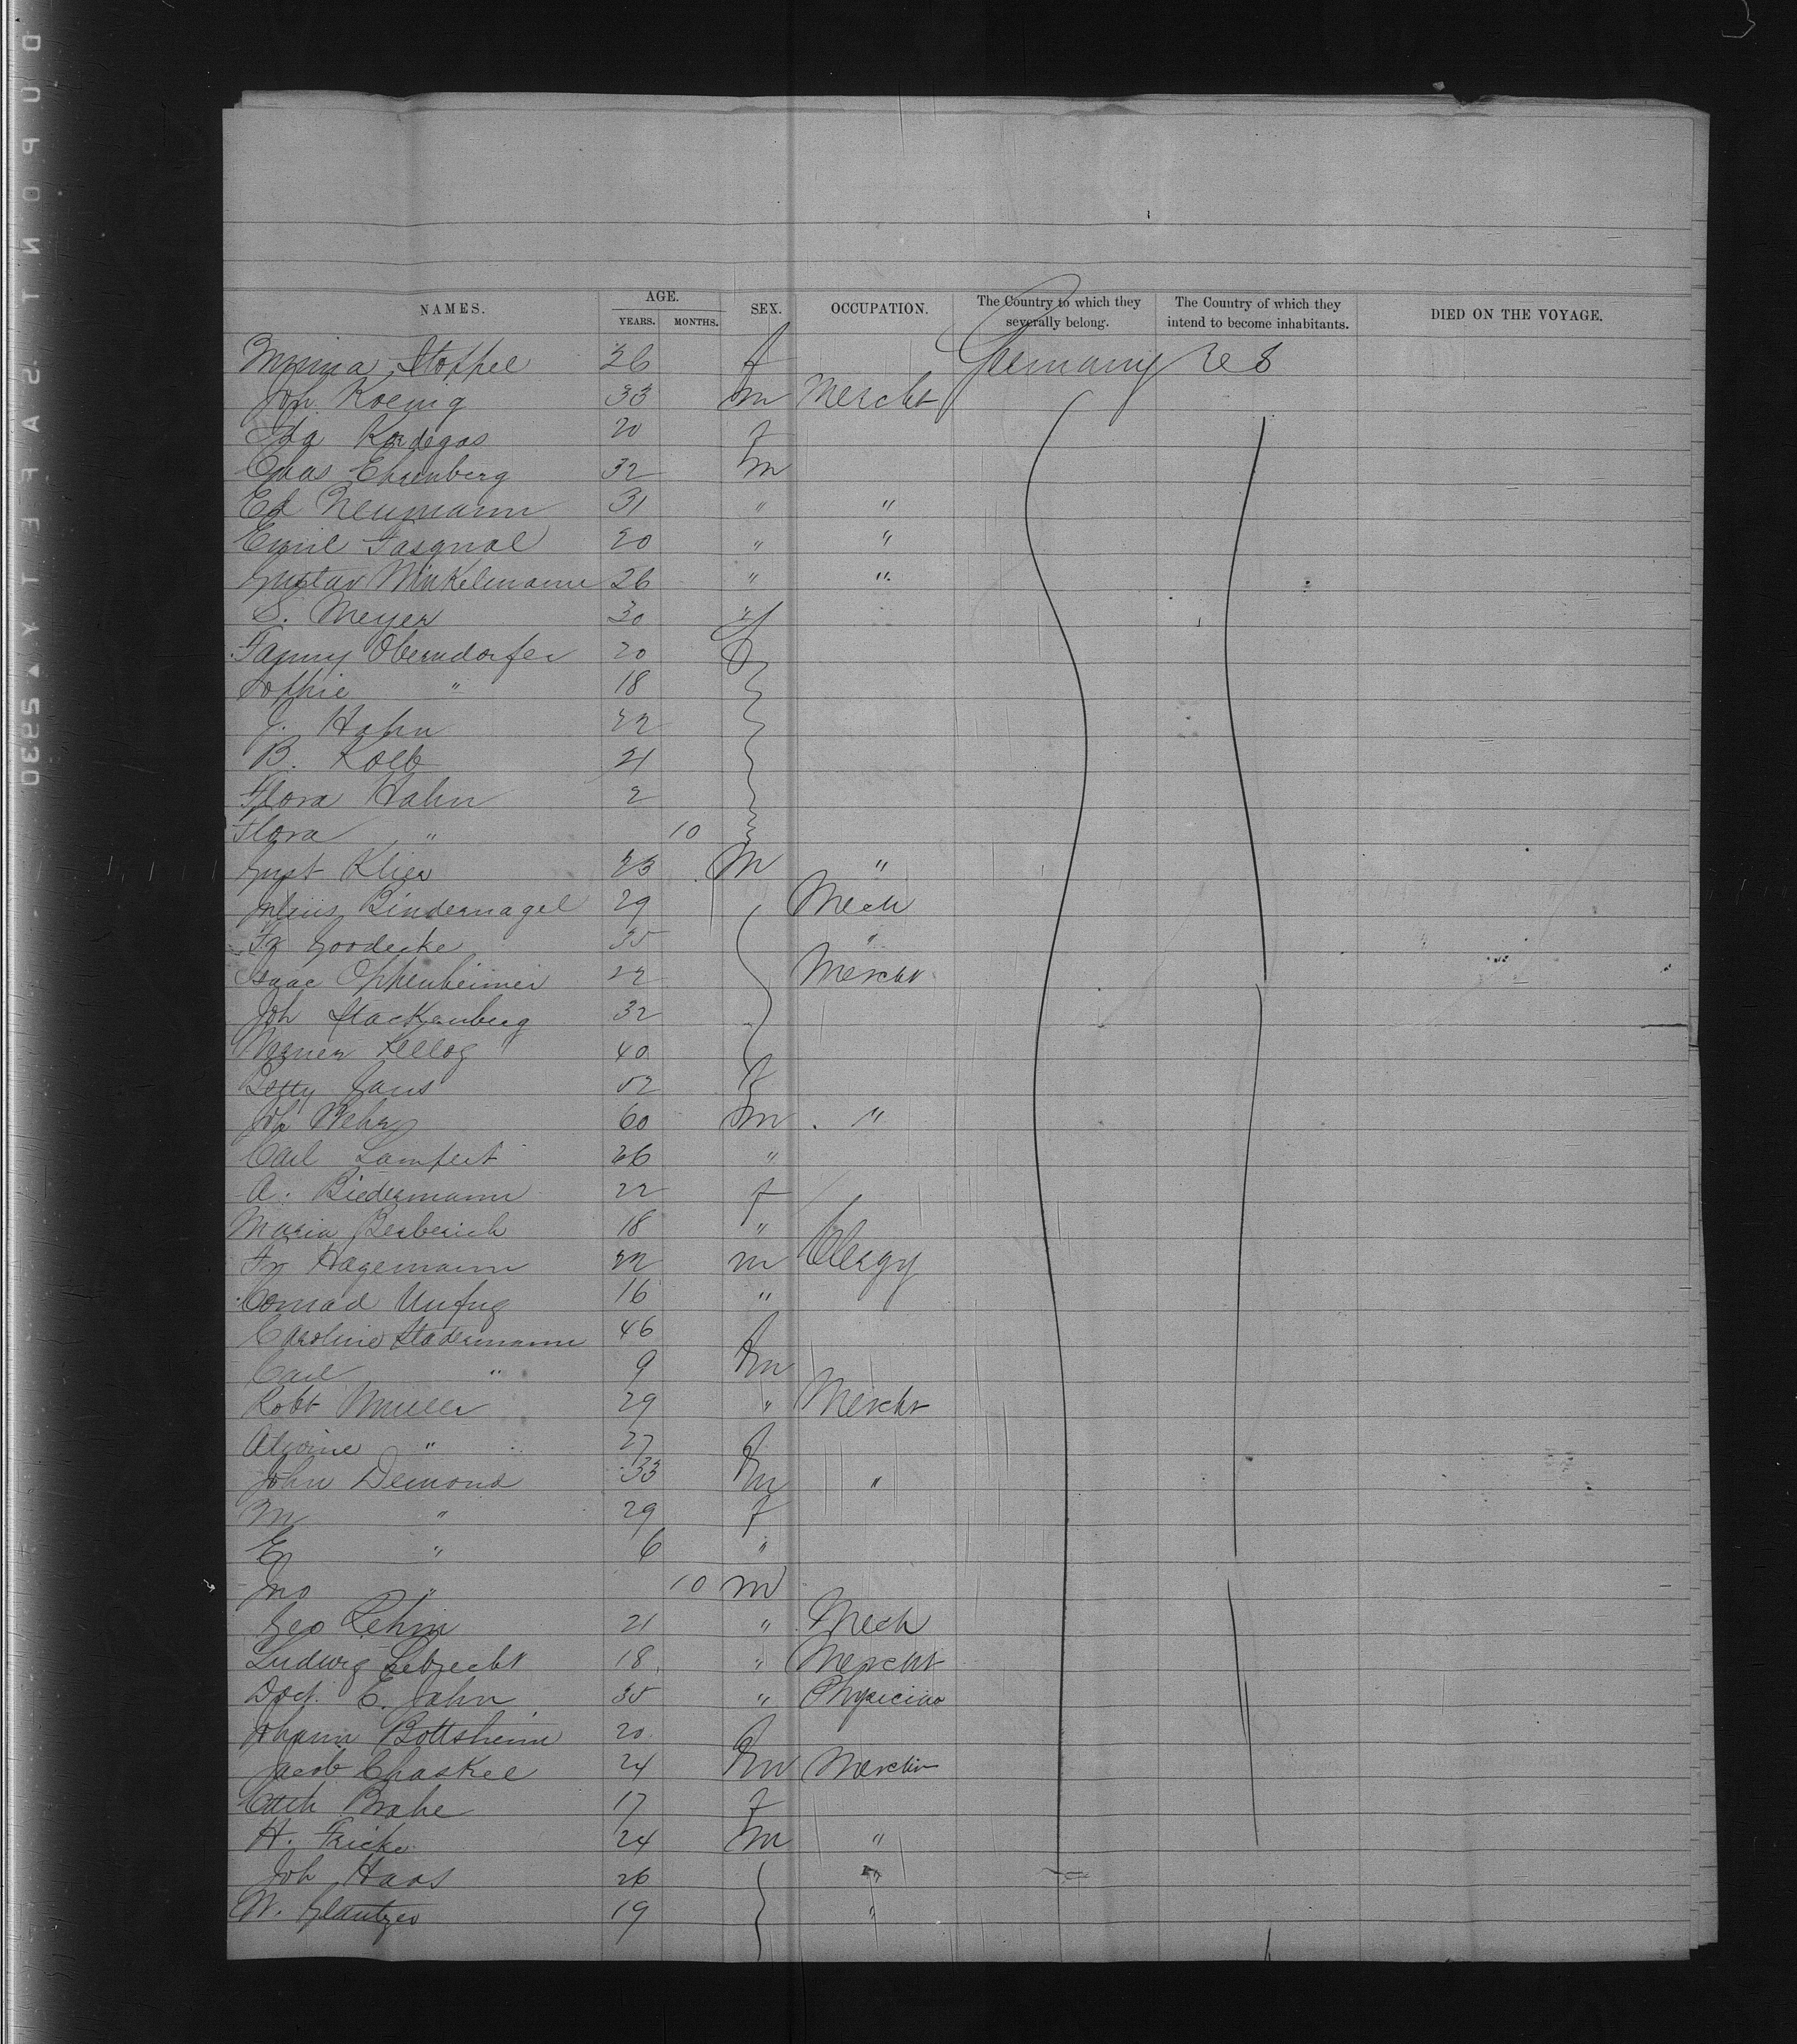 NAMES. AGE. YEARS. MONTHS. SEX. OCCUPATION. The Country to which they severally belong. The Country of which they intend to become inhabitants. DIED ON THE VOYAGE.
Minna Stoffel 26 f Germany U S
Joh. Koenig 33 m Mercht
Ida 20 f
Chas Ehrenberg 32 m
Ed Neumann 31 " "
Emil 20 " "
Gustav Winkelmann 26 " "
S. Meyer 30 "
Fanny Oberndorfer 20 f
Sophie " 18
J. Hahn 22
B. Kolb 21
Flora Hahn 2
Flora " 10
Gust Klier 23 m "
Julius Bindernagel 29 Mech
Fr Goedecke 35 "
Isaac Oppenheimer 22 Mercht
Joh Stackenberg 32
Kellog 40
Betty 52 f
Joh Wehr 60 m "
Carl Lampert 26 "
A. Biedermann 22 f
Maria Berberich 18 "
Fr Hagemann 22 m Clergy
Conrad Unfug 16 "
Caroline Stadermann 46 f
Carl " 9 m
Robt Muller 29 " Mercht
Alwine " 27 f
John Demond 33 m "
M " 29 f
E " 6 "
Jno " 10 m
Geo Rehm 21 " Mech
Ludwig Lebrecht 18 " Mercht
Doct. E. Jahn 35 " Physician
Johann Bottsheim 20 f
Jacob Chaskel 24 m Mercht
Cath Brahe 17 f
H. Fricke 24 m "
Joh Haas 26 "
W. Glantzer 19 "
DUPONT SAFETY 02930